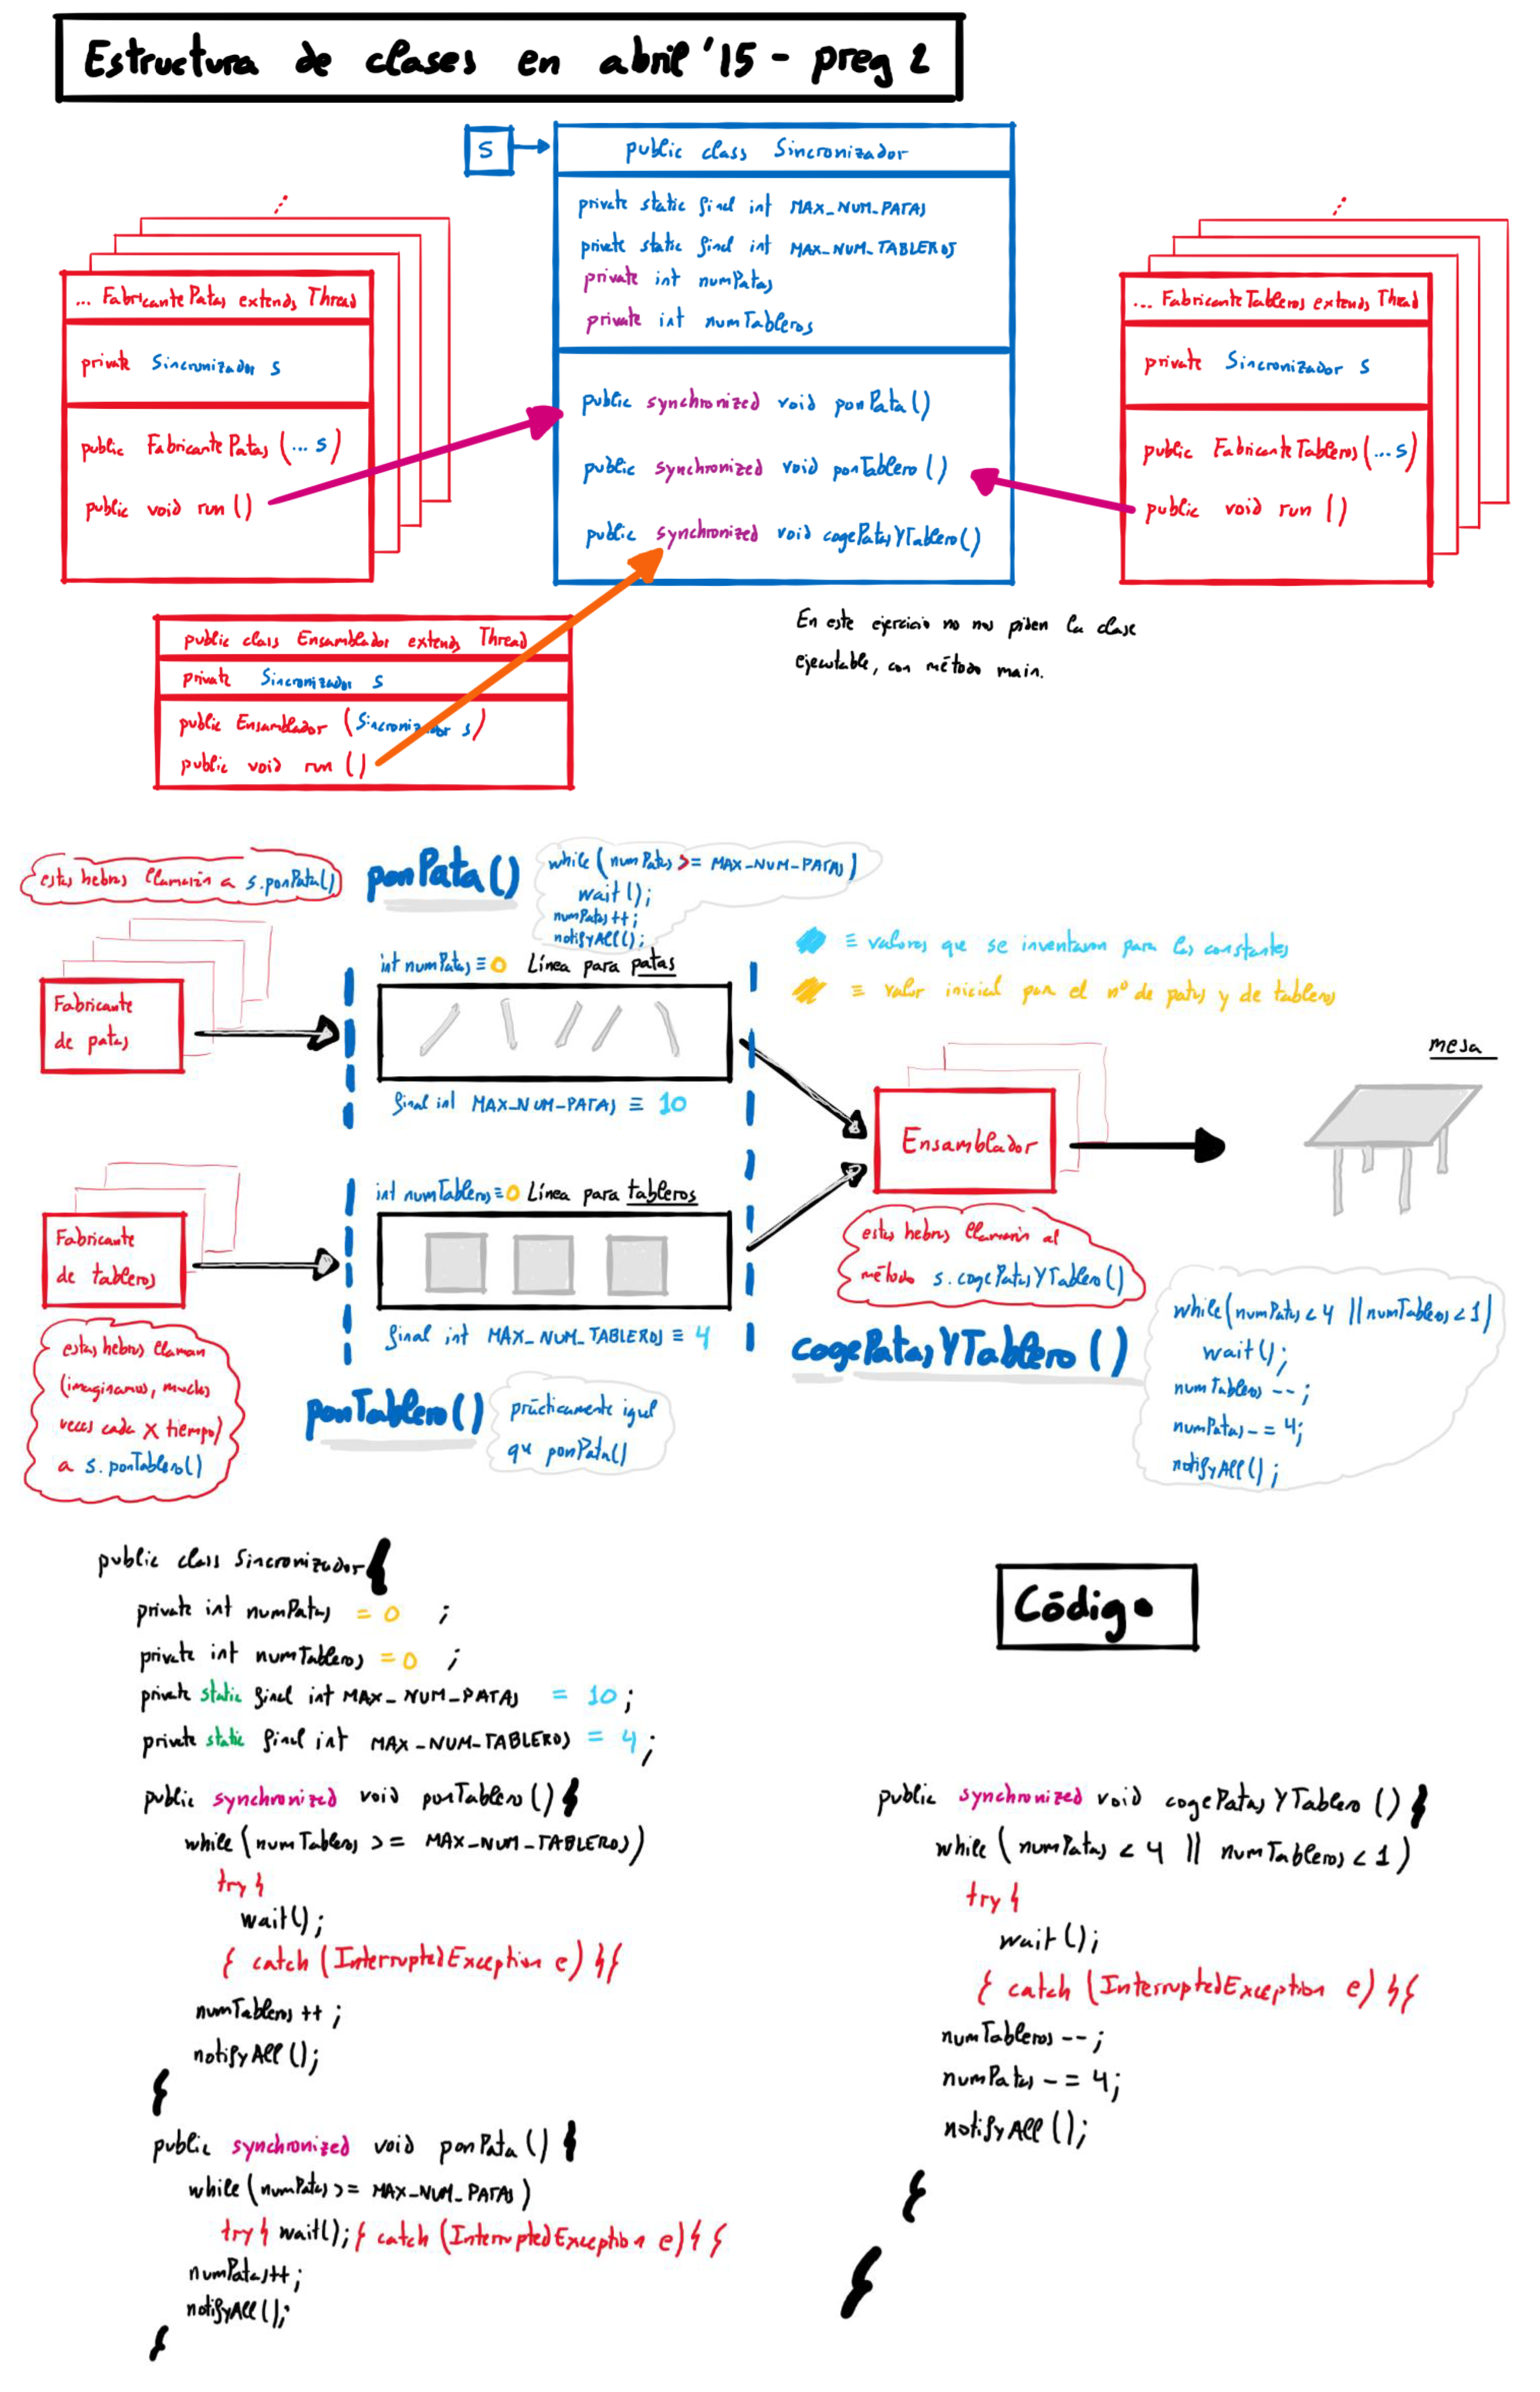 Estructura de clases en abril '15 - preg 2
S
public class Sincronizador
private static final int MAX_NUM_PATAS
private static final int MAX_NUM_TABLEROS
private int numPatas
private int numTableros
public synchronized void ponPata()
public synchronized void ponTablero()
public synchronized void cogePatasYTablero()
... FabricantePatas extends Thread
private Sincronizador s
public FabricantePatas (... s)
public void run()
... FabricanteTableros extends Thread
private Sincronizador s
public FabricanteTableros (... s)
public void run ()
public class Ensamblador extends Thread
private Sincronizador s
public Ensamblador (Sincronizador s)
public void run ()
En este ejercicio no nos piden la clase
ejecutable, con método main.
estas hebras llamarán a s.ponPata()
ponPata()
while (numPatas >= MAX_NUM_PATAS)
wait();
numPatas++;
notifyAll();
≡ valores que se inventaron para las constantes
≡ valor inicial para el nº de patas y de tableros
int numPatas ≡ 0 Línea para patas
Fabricante
de patas
final int MAX_NUM_PATAS ≡ 10
mesa
Ensamblador
int numTableros ≡ 0 Línea para tableros
Fabricante
de tableros
final int MAX_NUM_TABLEROS ≡ 4
estas hebras llamarán al
método s.cogePatasYTablero()
estas hebras llaman
(imaginamos, muchas
veces cada X tiempo)
a s.ponTablero()
ponTablero()
prácticamente igual
que ponPata()
cogePatasYTablero()
while(numPatas < 4 || numTableros < 1)
wait();
numTableros --;
numPatas -= 4;
notifyAll();
public class Sincronizador {
private int numPatas = 0 ;
private int numTableros = 0 ;
private static final int MAX_NUM_PATAS = 10;
private static final int MAX_NUM_TABLEROS = 4;
public synchronized void ponTablero() {
while (numTableros >= MAX_NUM_TABLEROS)
try {
wait();
} catch (InterruptedException e) {}
numTableros ++;
notifyAll();
}
public synchronized void ponPata () {
while (numPatas >= MAX_NUM_PATAS)
try { wait(); } catch (InterruptedException e) { }
numPatas++;
notifyAll();
}
Código
public synchronized void cogePatasYTablero () {
while (numPatas < 4 || numTableros < 1)
try {
wait();
} catch (InterruptedException e) {}
numTableros --;
numPatas -= 4;
notifyAll();
}
}